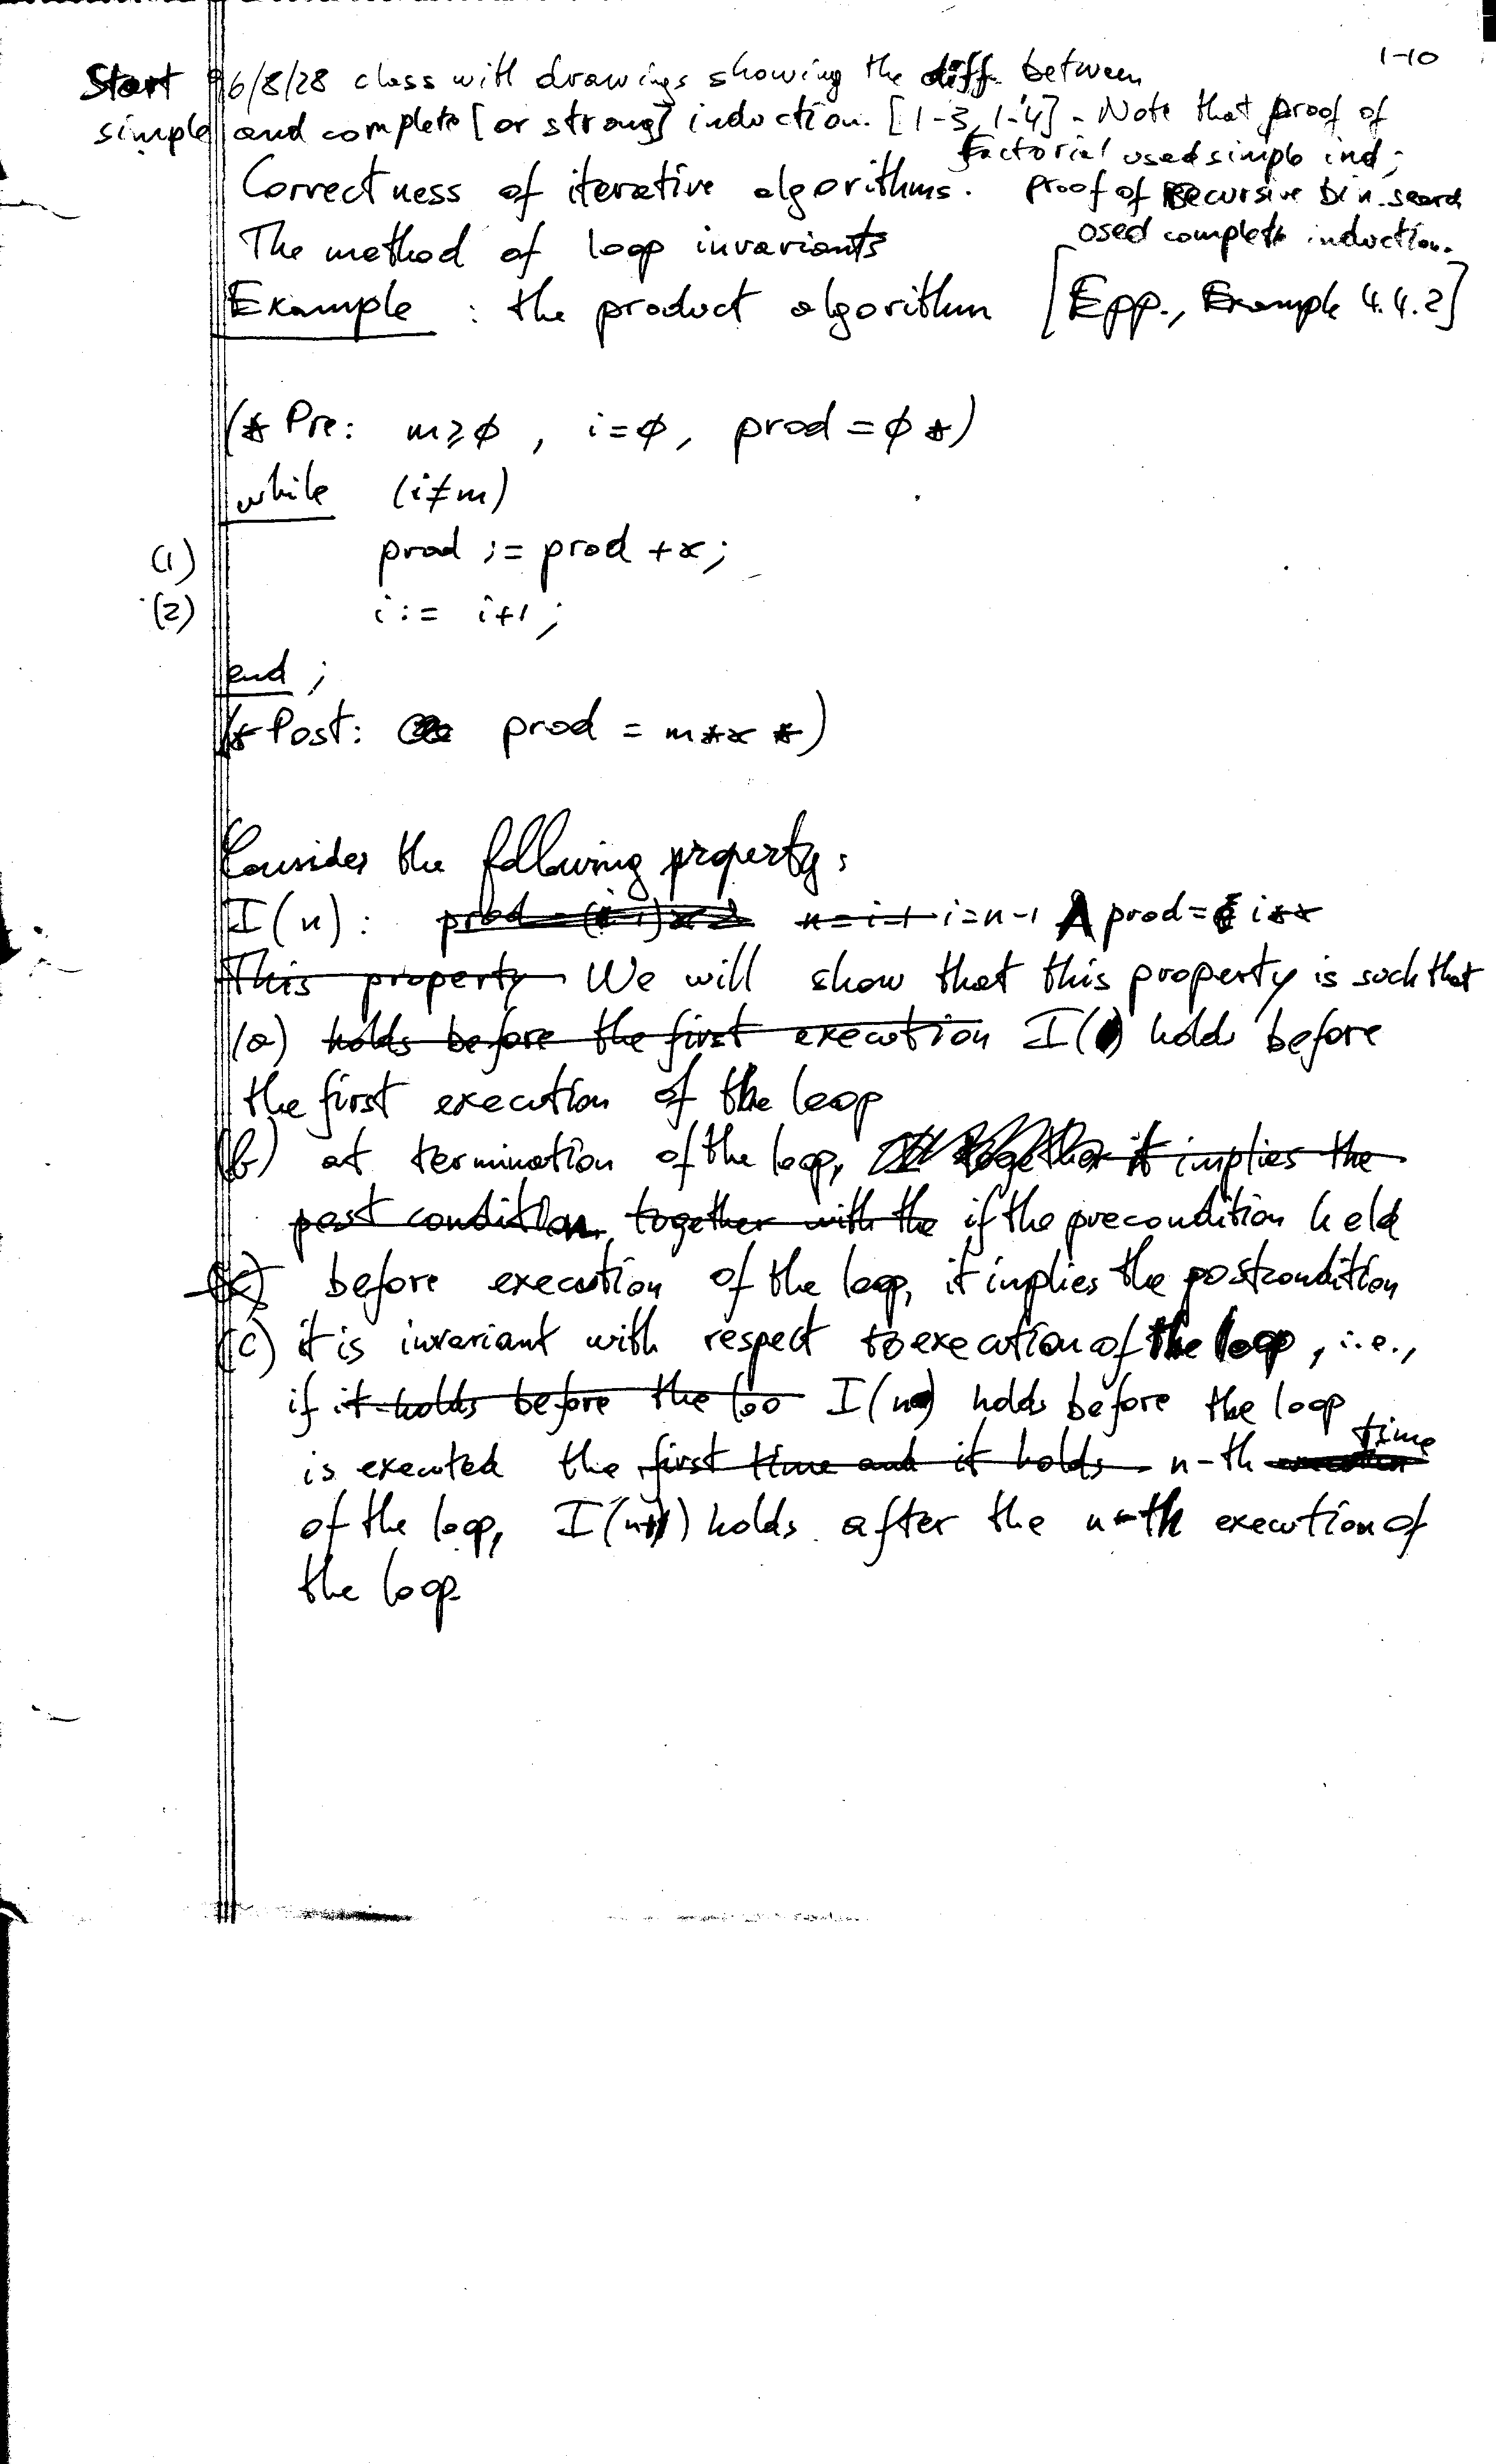 1-10
Start 96/8/28 class with drawings showing the diff. between
simple and complete [or strong] induction. [1-3, 1-4] - Note that proof of
factorial used simple ind;
Correctness of iterative algorithms. proof of recursive bin. search
The method of loop invariants used complete induction.
Example : the product algorithm [Epp., Example 4.4.2]
(* Pre: m≥0, i=0, prod=0 *)
while (i≠m)
(1) prod := prod +x;
(2) i := i+1;
end;
(* Post: prod = m*x *)
Consider the following property:
I(n): n=i+1 i=n-1 ∧ prod= i*x
This property We will show that this property is such that
(a) holds before the first execution I( ) holds before
the first execution of the loop
(b) at termination of the loop, together it implies the
post condition, together with the if the precondition held
(c) before execution of the loop, it implies the postcondition
(c) it is invariant with respect to execution of the loop, i.e.,
if it holds before the loo I(n) holds before the loop
is executed the first time and it holds n-th time
of the loop, I(n+1) holds after the n-th execution of
the loop.